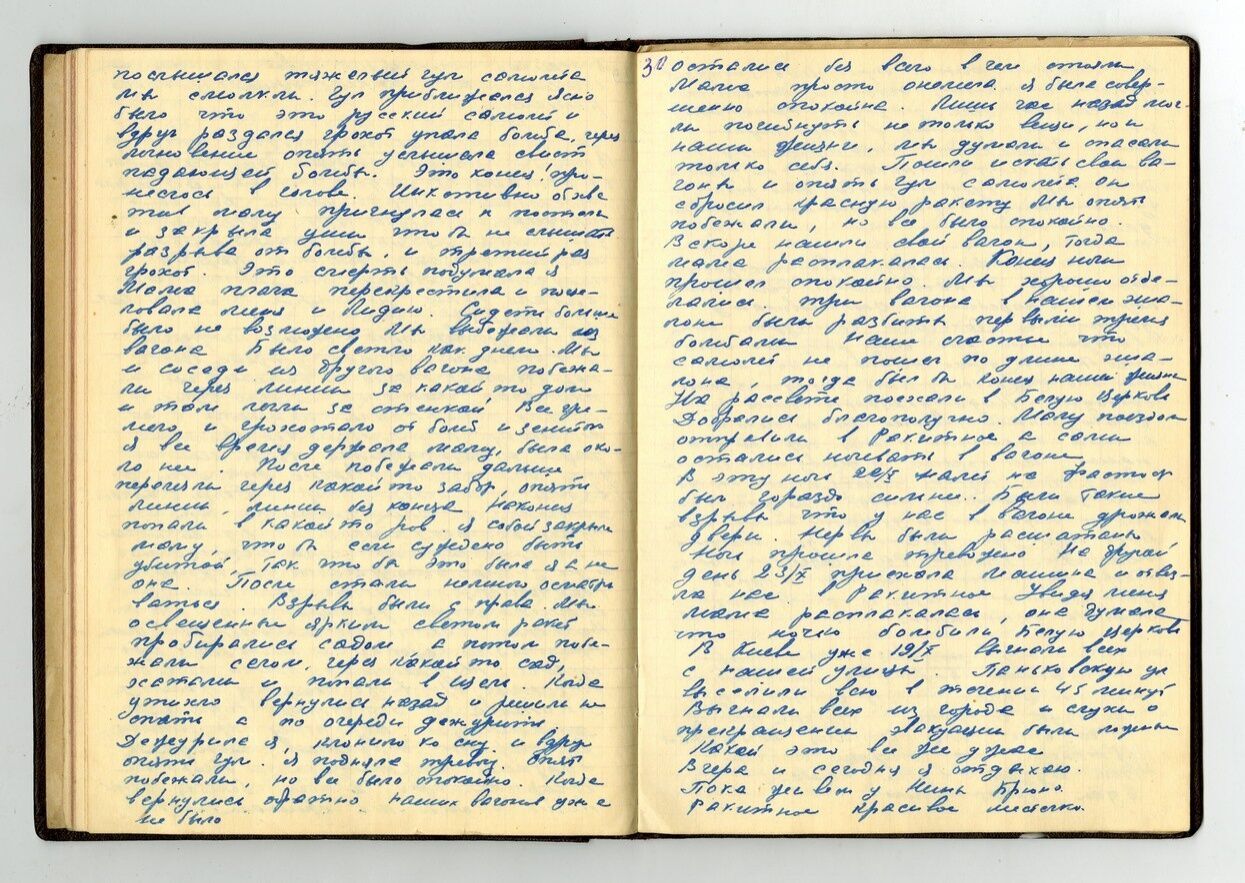 послышался тяжелый гул самолета
мы смолкли. Гул приближался Ясно
было что это русский самолет и
вдруг раздался грохот упала бомба, через
мгновение опять услышала свист
падающей бомбы. Это конец про-
неслось в голове. Инстинктивно обхва
тив маму пригнулась к постели
и закрыла уши чтобы не слышать
разрыва от бомбы, и третий раз
грохот. Это смерть подумала я
Мама плача перекрестила и поце-
ловала меня и Лидию. Сидеть больше
было не возможно Мы выбежали из
вагона Было светло как днем. Мы
и соседи из другого вагона побежа-
ли через линии за какой то дом
и там легли за стенкой Все гре-
мело, и грохотало от бомб и зениток
Я все время держала маму, была око-
ло нее. После побежали дальше
перелезли через какой то забор, опять
линии, линии без конца Наконец
попали в какой то ров. Я собой закрыла
маму, чтобы если суждено быть
убитой так чтобы это была я а не
она. После стали немного осматри
ваться. Взрывы были с права. Мы
освещенные ярким светом ракет
пробирались садом а потом побе-
жали селом, через какой то сад,
и попали в щель. Когда
утихло вернулись назад и решили не
спать а по очереди дежурить
Дежурила я, клонило ко сну и вдруг
опять гул. Я подняла тревогу. Опять
побежали, но все было спокойно. Когда
вернулись обратно наших вагонов уже
не было
30 остались без всего в чем стояли
Мама просто онемела. Я была совер-
шенно спокойна. Лишь час назад мог-
ли погибнуть не только вещи, но и
наши жизни, мы думали и спасали
только себя. Пошли искать свои ва-
гоны и опять гул самолета. Он
сбросил красную ракету Мы опять
побежали, но все было спокойно.
Вскоре нашли свой вагон, тогда
мама расплакалась. Конец ночи
прошел спокойно. Мы хорошо отде-
лались. Три вагона в нашем эша-
лоне были разбиты первыми тремя
бомбами Наше счастье что
самолет не пошел по длине эша-
лона, тогда был бы конец нашей жизни
На рассвете поехали в Белую Церковь
Добрались благополучно. Маму поездом
отправили в Ракитное а сами
остались ночевать в вагоне
В эту ночь 22/X налет на Фастов
был гораздо сильнее. Были такие
взрывы что у нас в вагоне дрожали
двери. Нервы были расшатаны
Ночь прошла тревожно На другой
день 23/X приехала машина и отвез-
ла нас в Ракитное Увидя меня
мама расплакалась, она думала
что ночью бомбили Белую Церковь
В Киеве уже 19/X выгнали всех
с нашей улицы. Паньковскую ул
выселили всю в течении 45 минут
Выгнали всех из города и слухи о
прекращении эвакуации были ложны
Какой это все же ужас
Вчера и сегодня я отдыхаю.
Пока живем у Нины Брюно.
Ракитное красивое местечко.